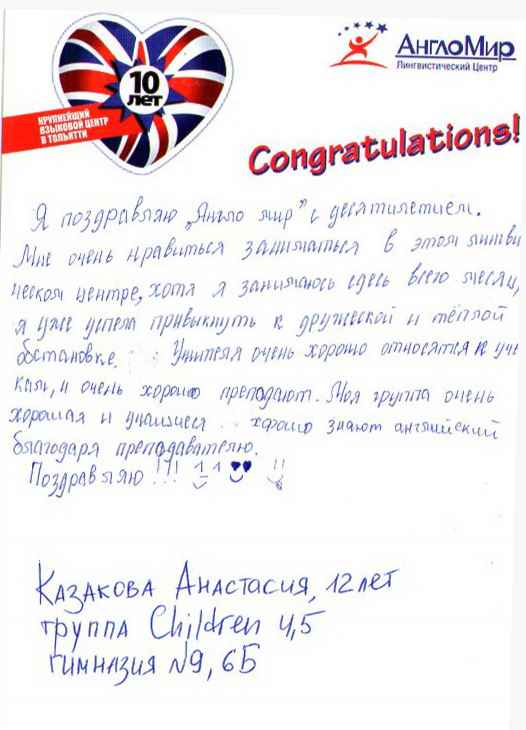 10
ЛЕТ
КРУПНЕЙШИЙ
ЯЗЫКОВОЙ ЦЕНТР
В ТОЛЬЯТТИ
АнглоМир
Лингвистический Центр
Congratulations!
Я поздравляю „Англо мир" с десятилетием.
Мне очень нравиться заниматься в этом лингви
ческом центре, хотя я занимаюсь сдесь всего месяц,
я уже успела привыкнуть к дружеской и тёплой
обстановке. Учителя очень хорошо относятся к уче
кам, и очень хорошо преподают. Моя группа очень
хорошая и учащиеся хорошо знают английский
благодаря преподавателю.
Поздравляю !!!
Казакова Анастасия, 12 лет
группа Children 4,5
гимназия №9, 6Б